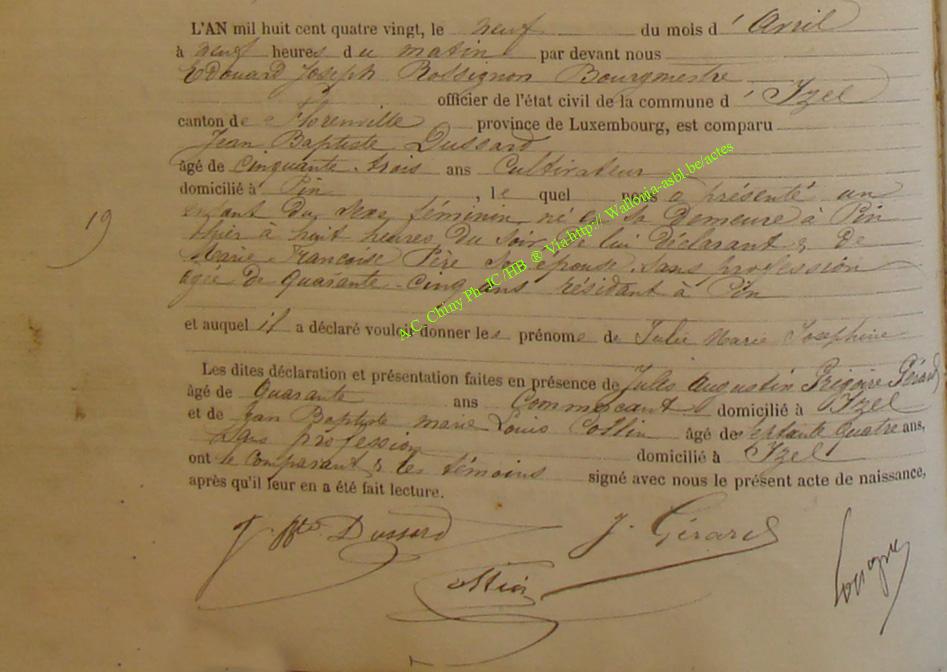 L'AN mil huit cent quatre vingt, le neuf du mois d' Avril
à neuf heures du matin par devant nous
Edouard Joseph Rossignon Bourgmestre
officier de l'état civil de la commune d' Izel
canton de Florenville province de Luxembourg, est comparu
Jean Baptiste Dussard
âgé de Cinquante-trois ans Cultivateur
domicilié à Pin, le quel nous a présenté un
enfant du sexe féminin, né en sa Demeure à Pin
hier à huit heures du Soir, de lui déclarant & de
Marie-Françoise son épouse, sans profession
agée de quarante-cinq ans résidant à Pin
19
et auquel il a déclaré vouloir donner les prénoms de Julie Marie Joséphine
Les dites déclaration et présentation faites en présence de Jules Augustin Gérard
âgé de Quarante ans Commerçant domicilié à Izel
et de Jean Baptiste marie Louis Collin âgé de septante quatre ans,
sans profession domicilié à Izel
ont le Comparant & les témoins signé avec nous le présent acte de naissance,
après qu'il leur en a été fait lecture.
J Bte Dussard J. Gérard
Collin
A.C. Chiny Ph JC/HB ® Via http:// Wallonia-asbl.be/actes